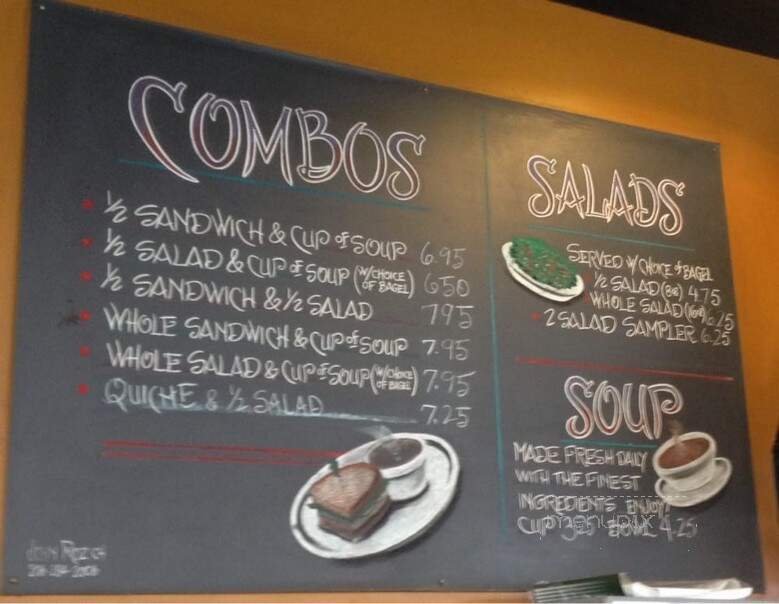 COMBOS
½ SANDWICH & CUP of SOUP 6.95
½ SALAD & CUP of SOUP (W/CHOICE OF BAGEL) 6.50
½ SANDWICH & ½ SALAD 7.95
WHOLE SANDWICH & CUP of SOUP 7.95
WHOLE SALAD & CUP of SOUP (W/CHOICE OF BAGEL) 7.95
QUICHE & ½ SALAD 7.25
SALADS
SERVED W/ CHOICE of BAGEL
½ SALAD (8oz) 4.75
WHOLE SALAD (16oz) 6.25
2 SALAD SAMPLER 6.25
SOUP
MADE FRESH DAILY
WITH THE FINEST
INGREDIENTS ENJOY!
CUP 3.25 BOWL 4.25
menupix